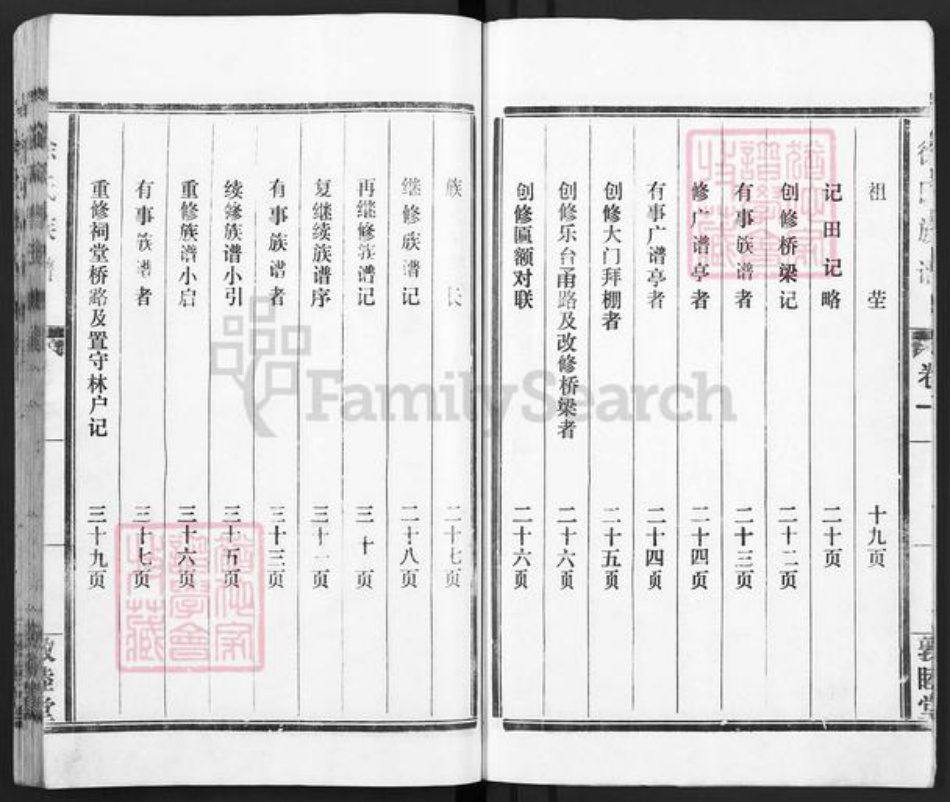 祖茔 十九页
记田记略 二十页
创修桥梁记 二十二页
有事族谱者 二十三页
修广谱亭者 二十四页
有事广谱亭者 二十四页
创修大门拜棚者 二十五页
创修乐台甬路及改修桥梁者 二十六页
创修匾额对联 二十六页
族长 二十七页
继修族谱记 二十八页
再继修族谱记 三十页
复继续族谱序 三十一页
有事族谱者 三十三页
续修族谱小引 三十五页
重修族谱小启 三十六页
有事族谱者 三十七页
重修祠堂桥路及置守林户记 三十九页
卷一
敦睦堂
FamilySearch